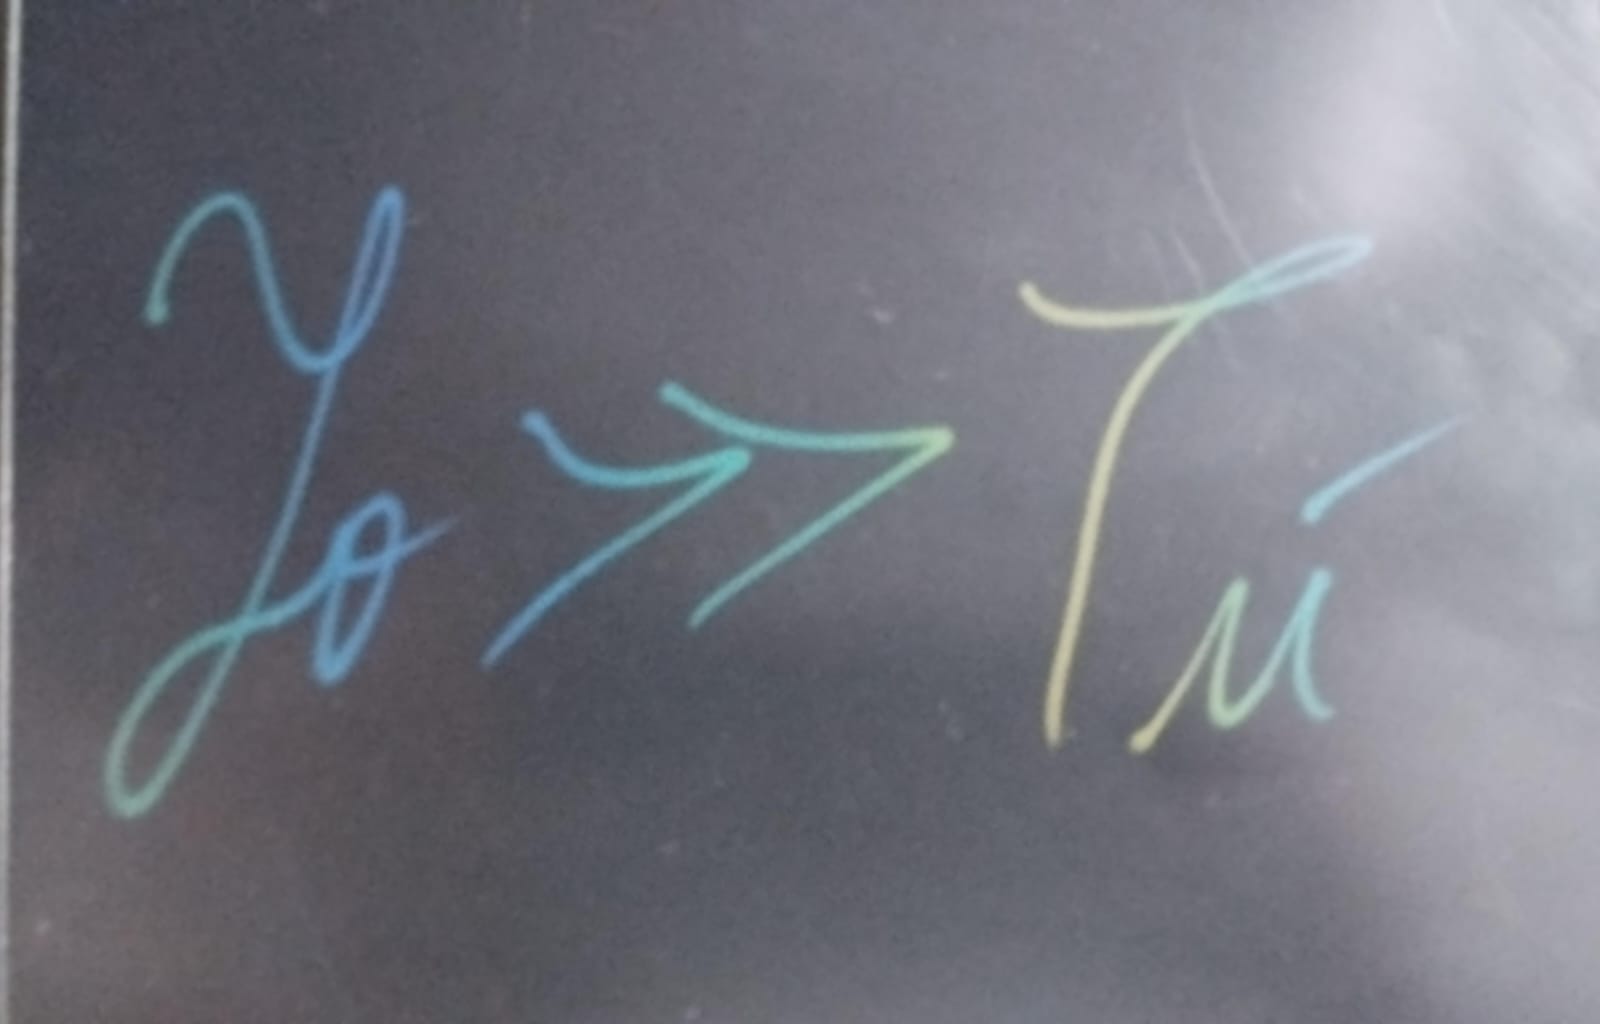 Yo >> Tú